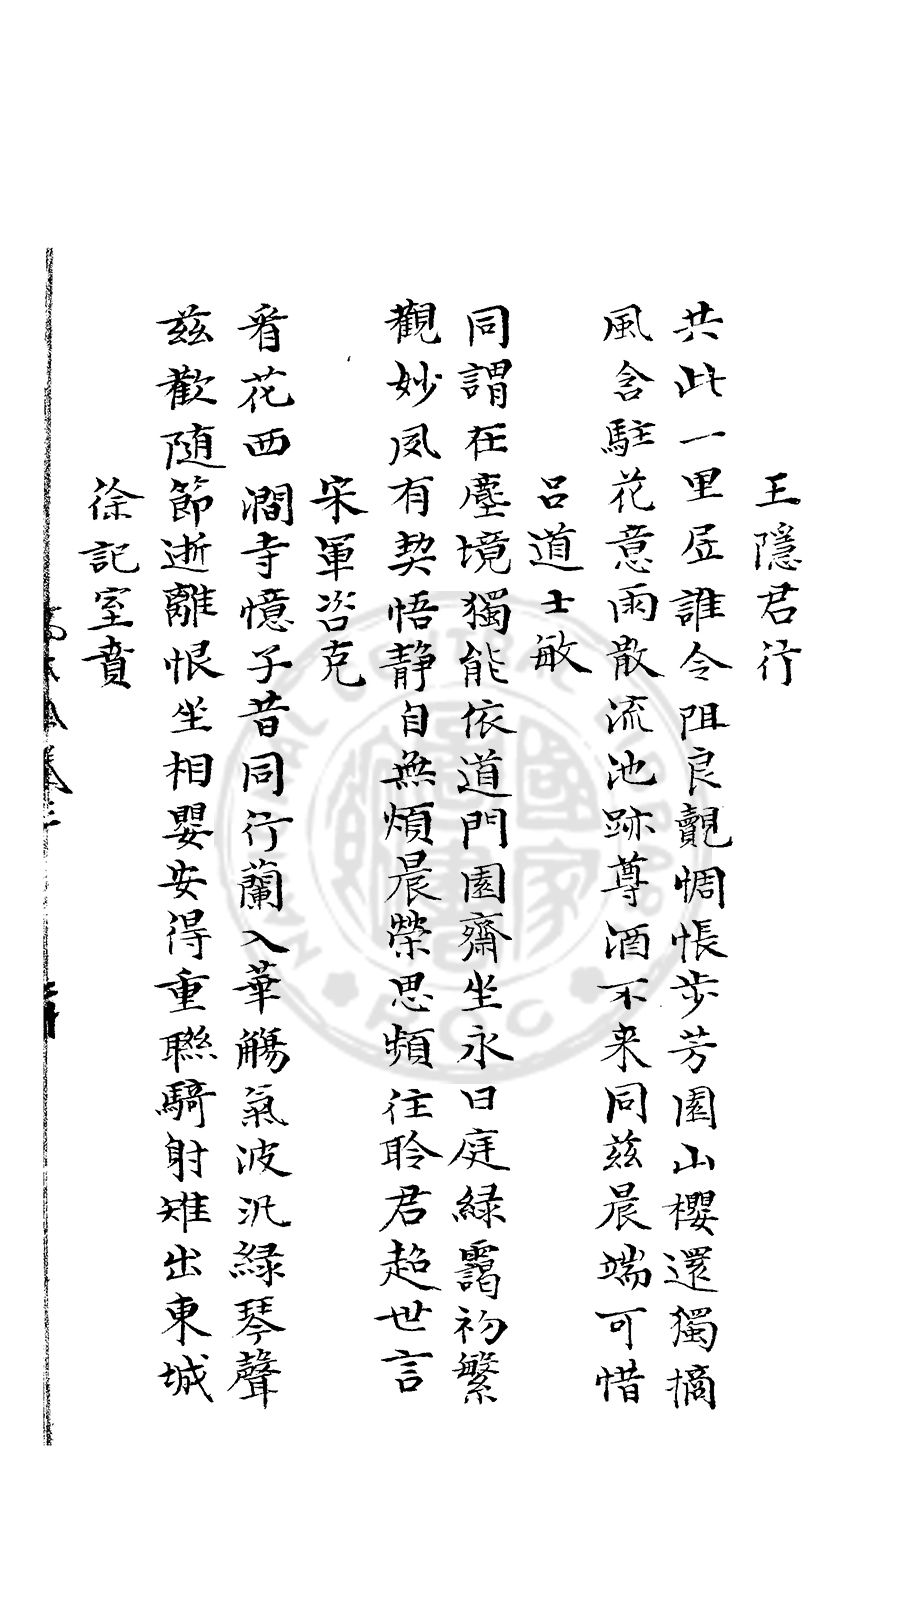 王隱君行
共此一里居誰令阻良覿惆悵步芳園山櫻還獨摘
風含駐花意雨散流池跡尊酒不来同茲晨端可惜
呂道士敏
同謂在塵境獨能依道門園齋坐永日庭緑靄初繁
觀妙夙有契悟静自無煩晨榮思頻往聆君超世言
宋軍咨克
看花西澗寺憶子昔同行蘭入華觴氣波汎緑琴聲
茲歡随節逝離恨坐相嬰安得重聯騎射雉出東城
徐記室賁